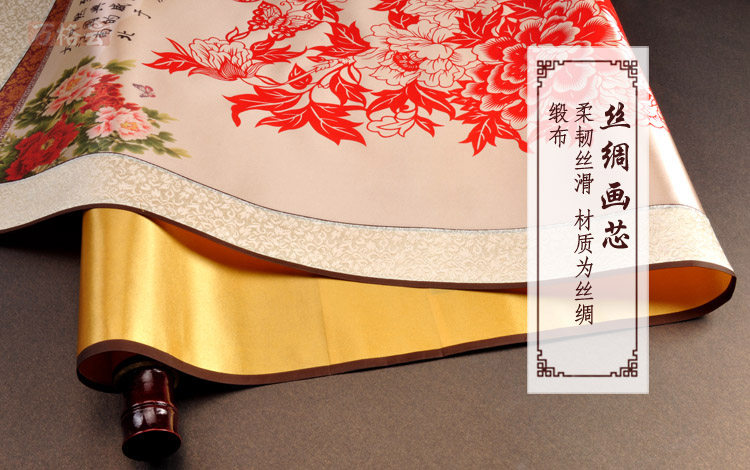 丝绸画芯
柔韧丝滑 材质为丝绸
缎布